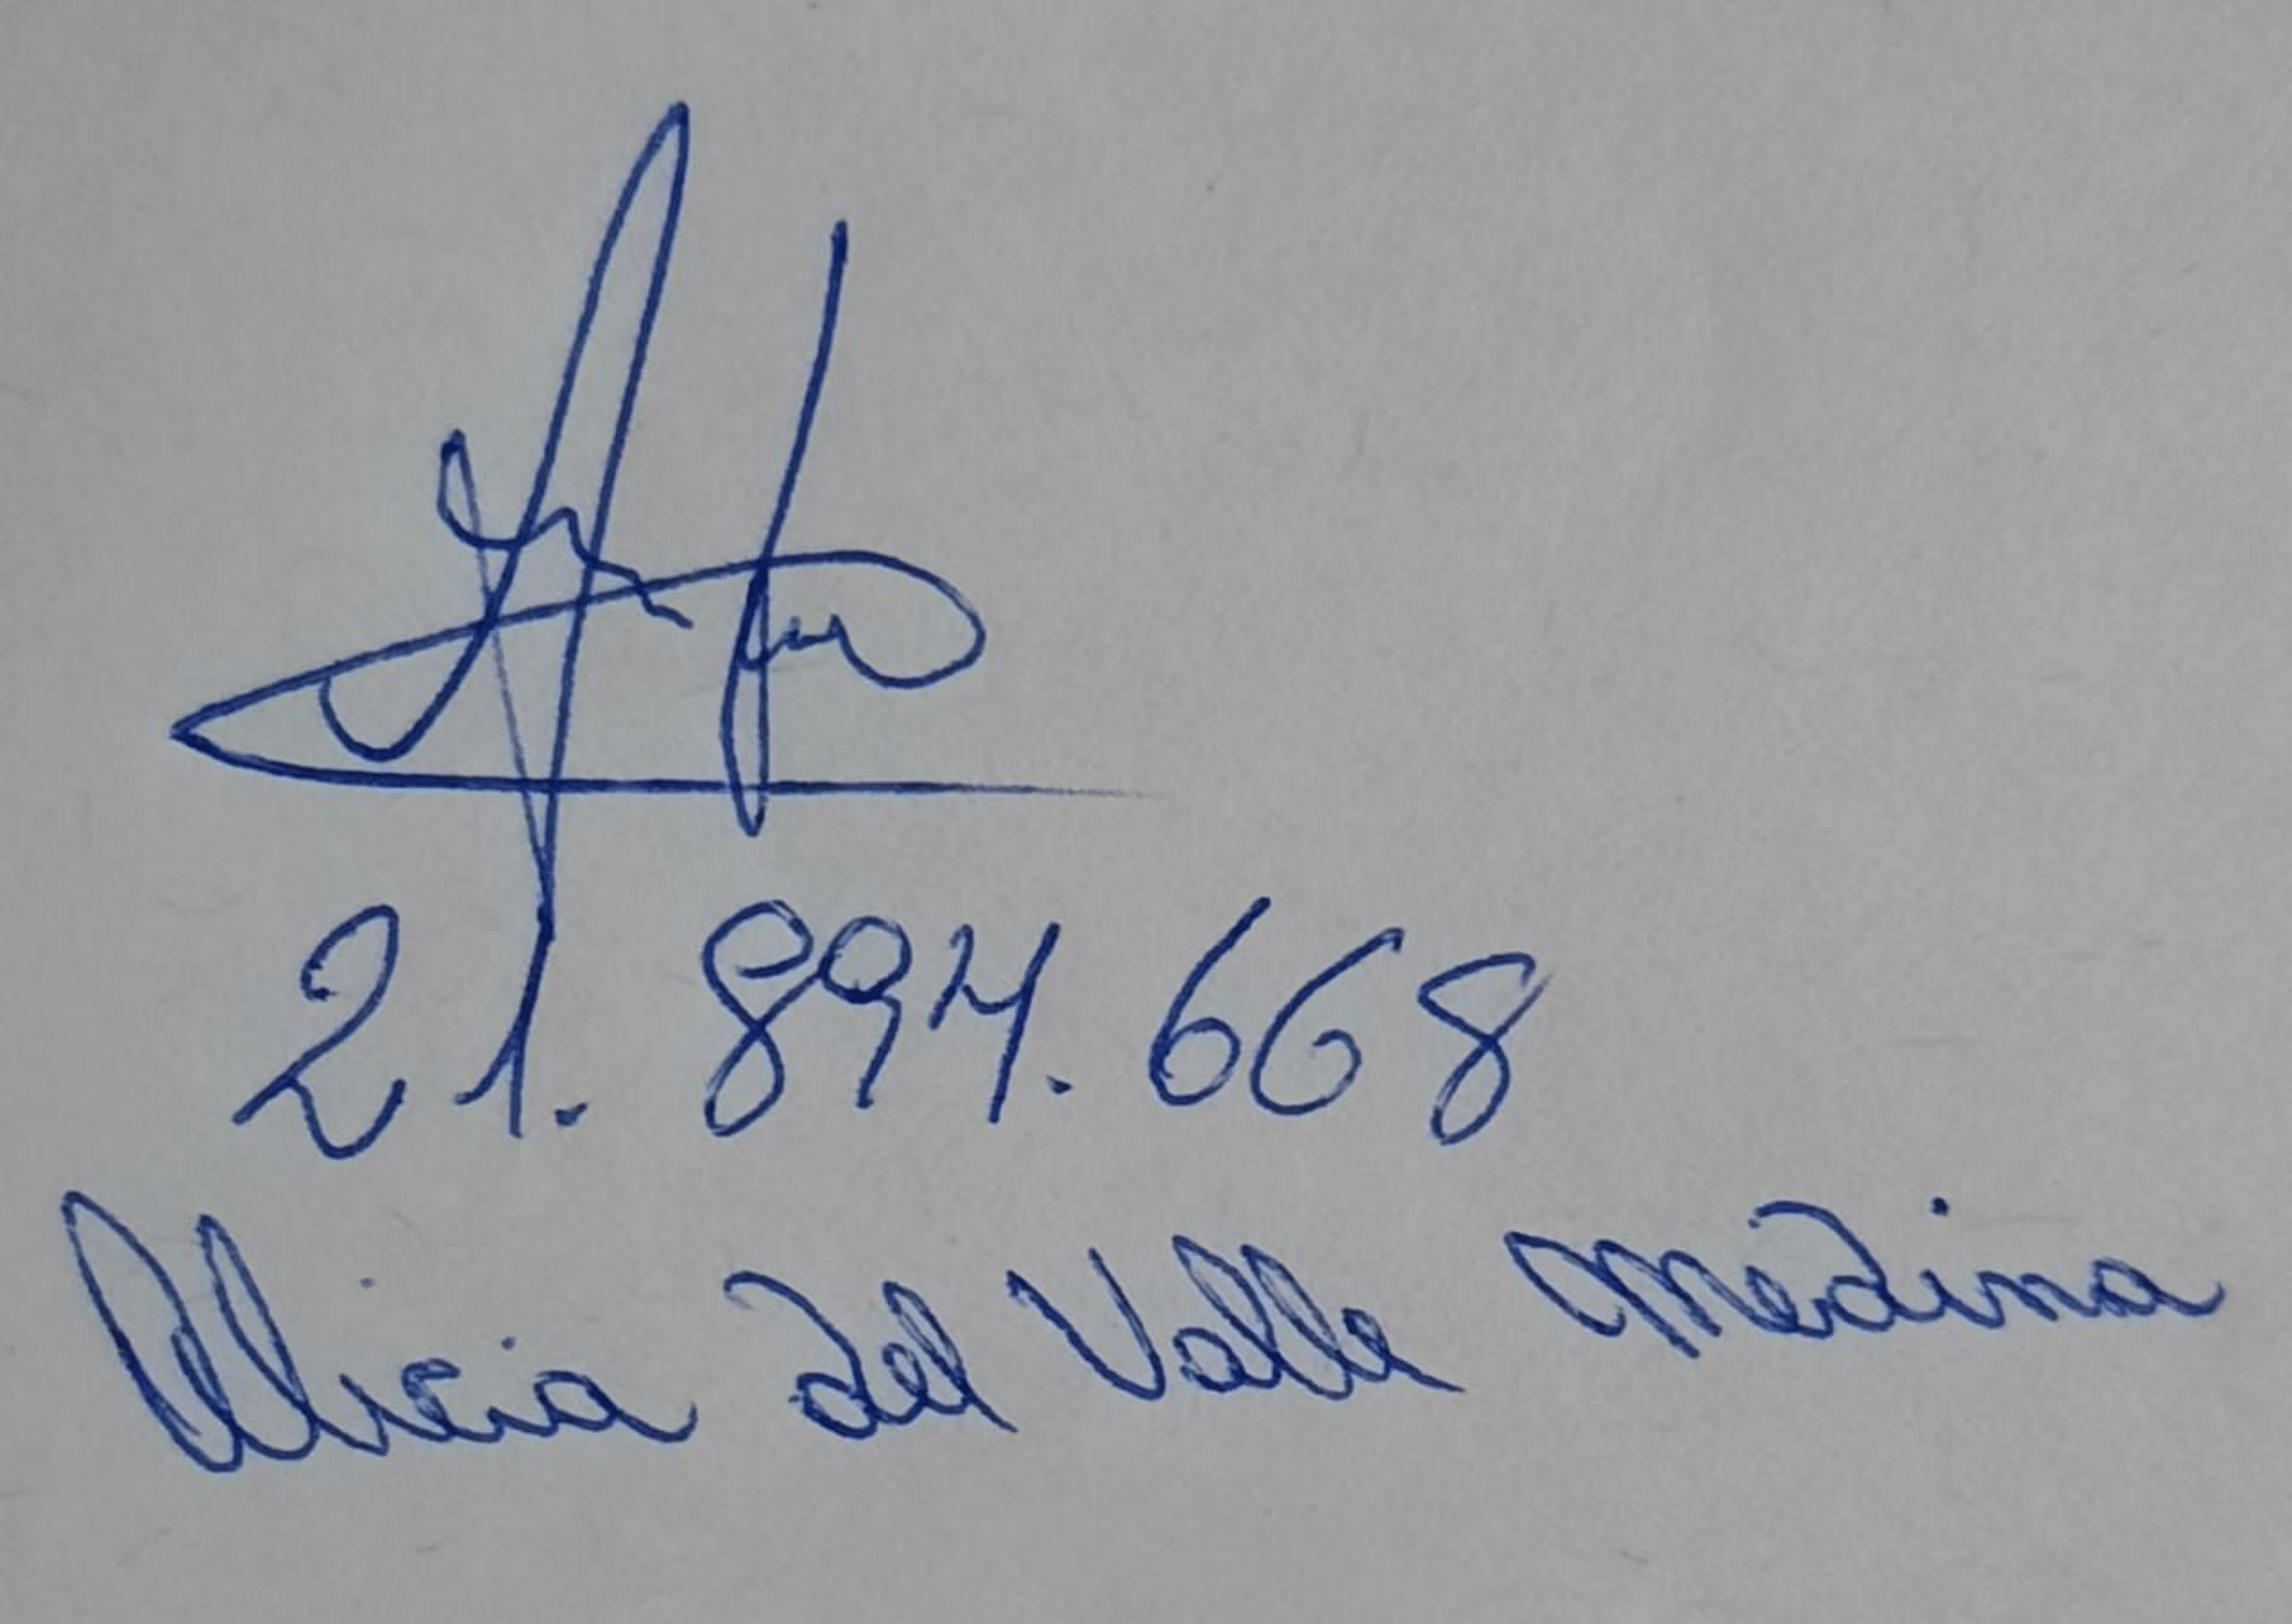 21.894.668
Alicia del Valle Medina